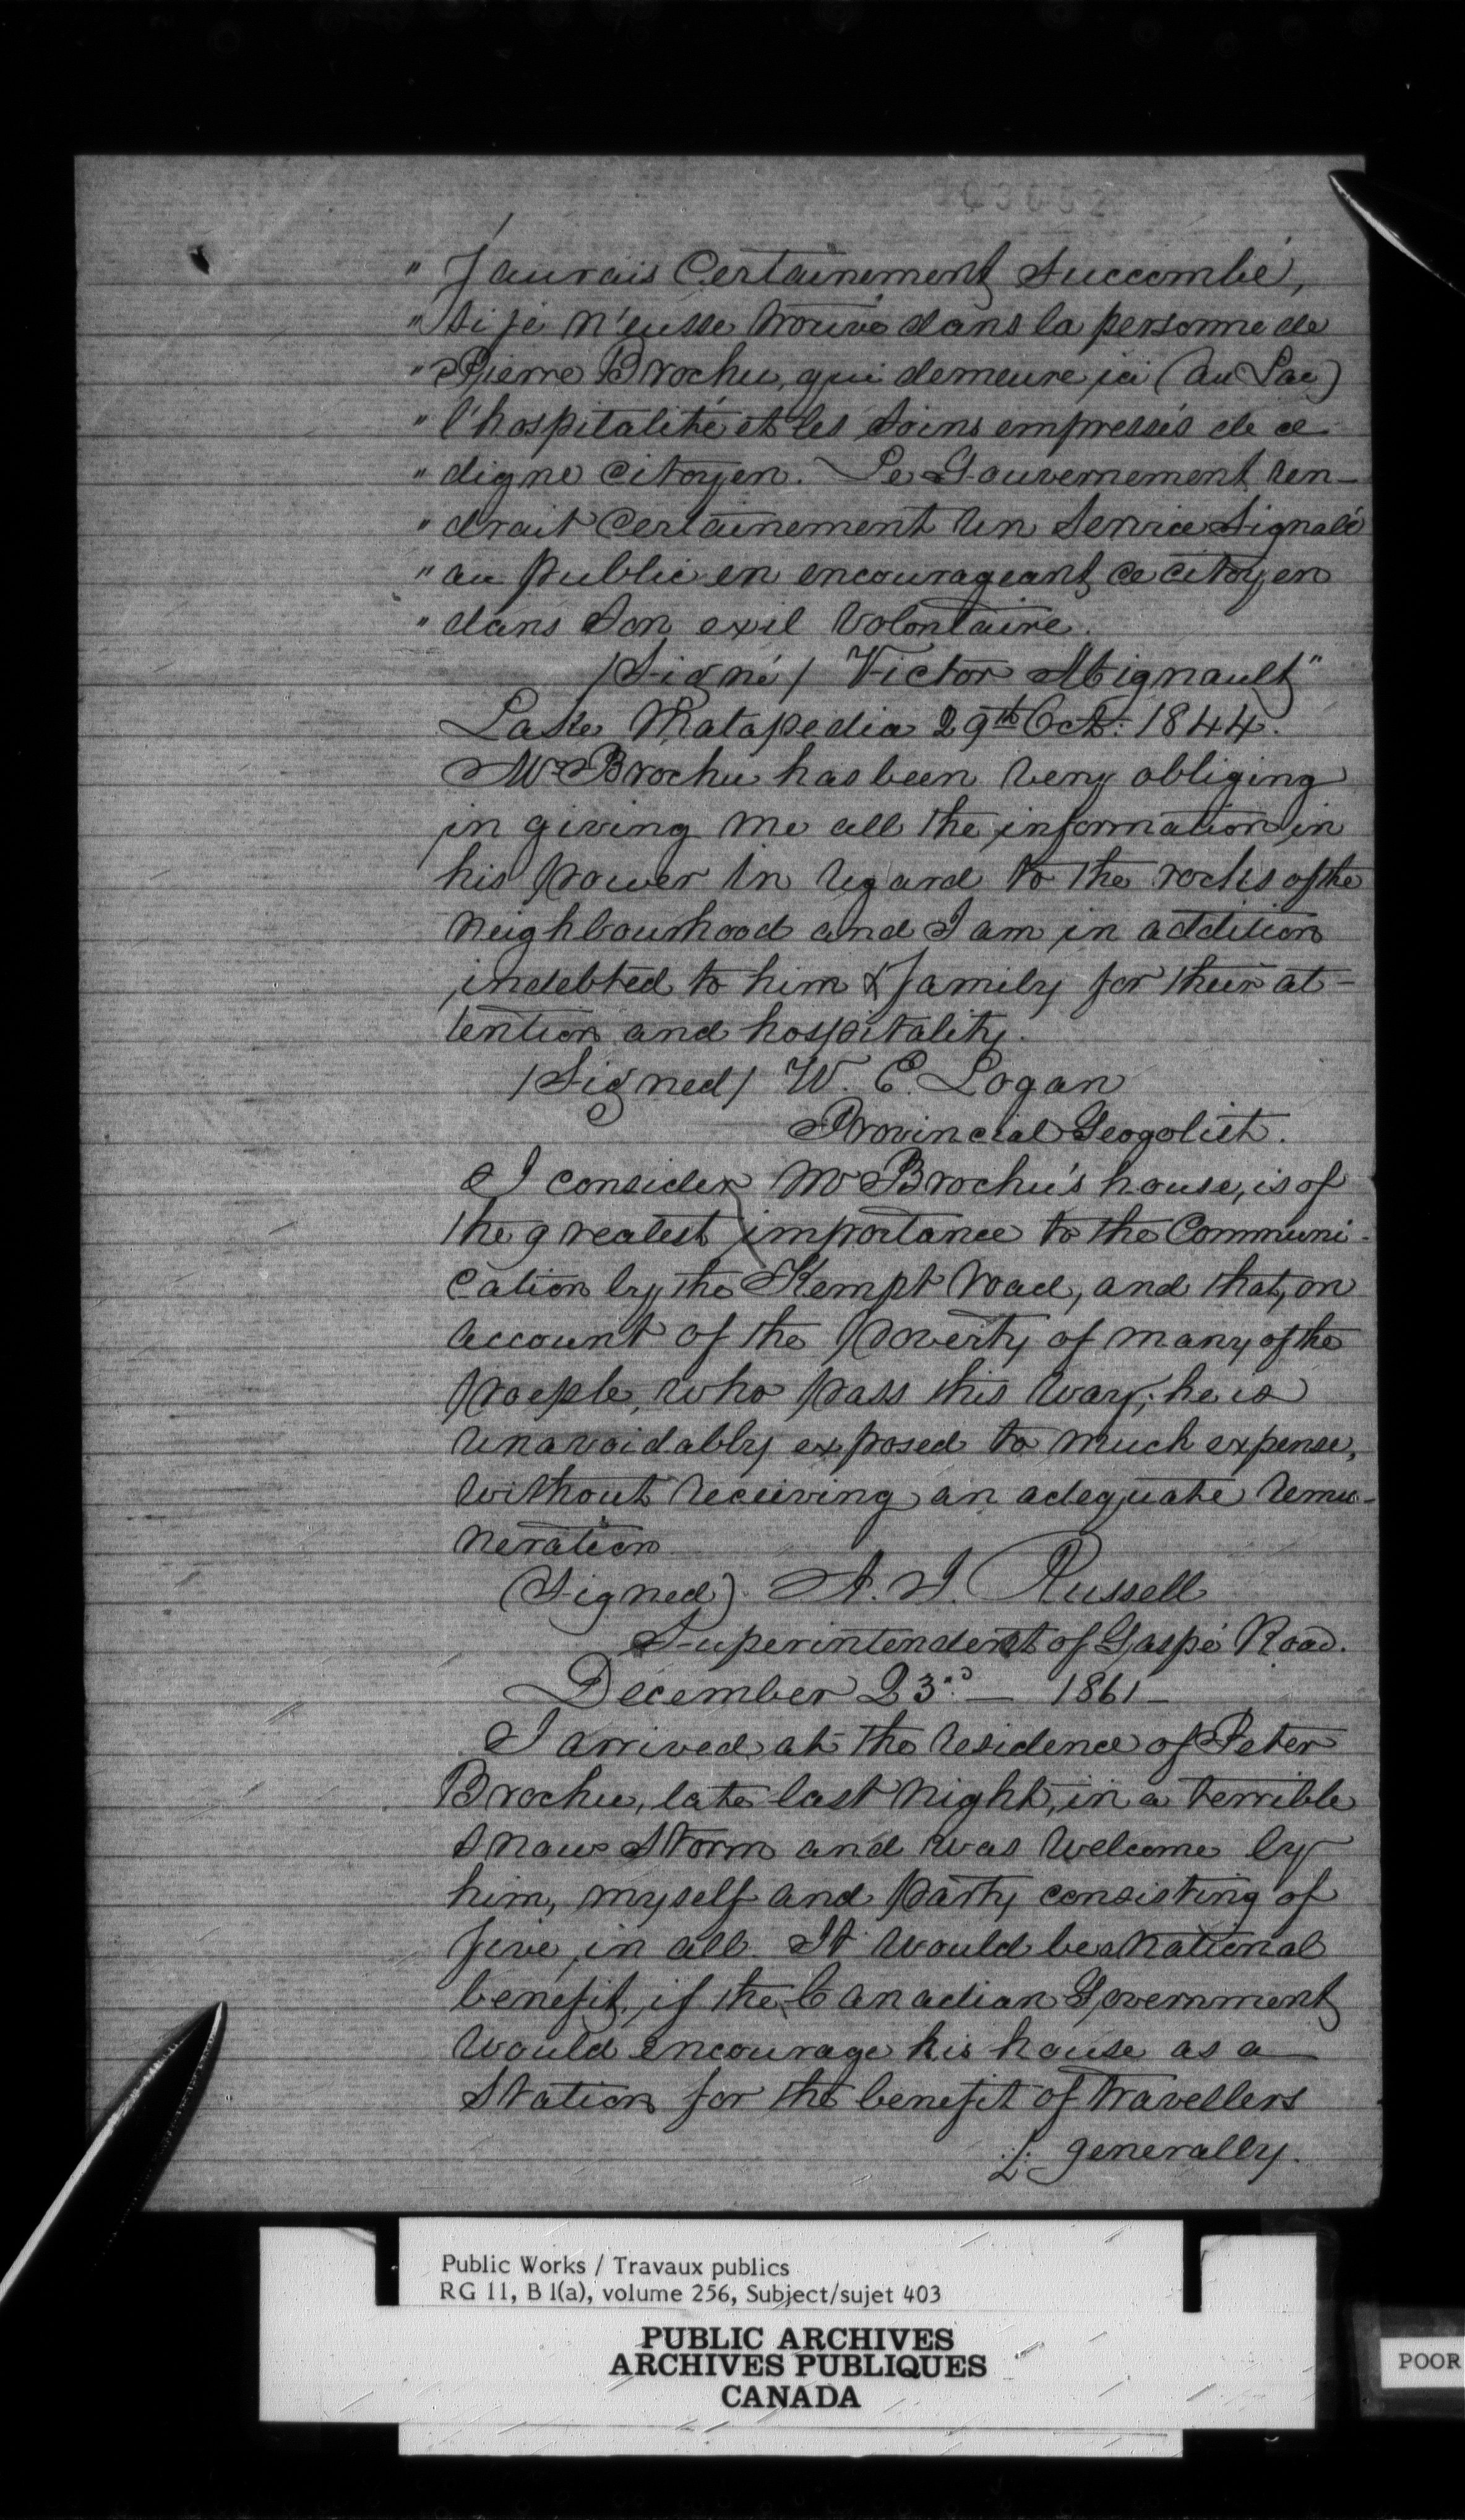 " J'aurais Certainement Succombé,
" Si je n'eusse trouvé dans la personne de
" Pierre Brochu, qui demeure ici (Au Lac)
" l'hospitalité et les Soins empressés de ce
" digne citoyen. Le Gouvernement ren-
" drait Certainement Un Service Signalé
" au public en encourageant ce citoyen
" dans Son exil Volontaire.
/Signé/ Victor Mignault"
Lake Matapedia 29th Oct: 1844.
Mr Brochu has been very obliging
in giving me all the information in
his power in regard to the rocks of the
Neighbourhood and I am in addition
indebted to him & family for their at-
tention and hospitality.
/Signed/ W. E. Logan
Provincial Geogolist.
I consider Mr Brochu's house, is of
the greatest importance to the Communi-
cation by the Kempt road, and that, on
account of the poverty of many of the
poeple, who pass this way; he is
unavoidably exposed to much expense,
without receiving an adequate remu-
neration
(Signed) A. J. Russell
Superintendent of Gaspé Road.
December 23rd — 1861 —
I arrived at the residence of Peter
Brochu, late last night, in a terrible
Snow Storm and was welcome by
him, myself and party consisting of
five, in all. It would be a National
benefit, if the Canadian Government
would encourage his house as a
Station for the benefit of travellers
generally.
Public Works / Travaux publics
RG 11, B 1(a), volume 256, Subject/sujet 403
PUBLIC ARCHIVES
ARCHIVES PUBLIQUES
CANADA
POOR